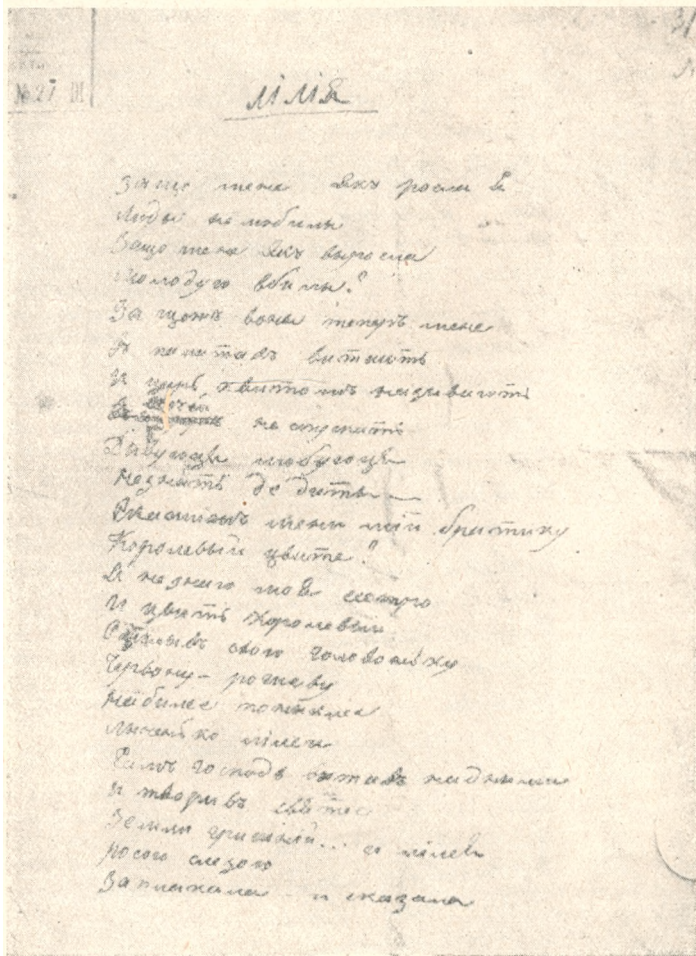 № 27 III
31
ЛІЛІЯ
За що мене якъ росла я
Люды не любылы
За що мене якъ выросла
Молодую вбылы?
За щожъ воны теперь мене
в палатахъ витають
И
не спустять
Дывуюця любуюця
не знають де диты
Скажижъ мени мій братику
Королевый цвите?
Я не знаю моя сестро
И цвитъ королевый
свою головоньку
Червону-рожеву
до билого
лыченька лилеи
господь над нами
И творывъ
Земли гришній... и лилея
росою слезою
Заплакала и сказала